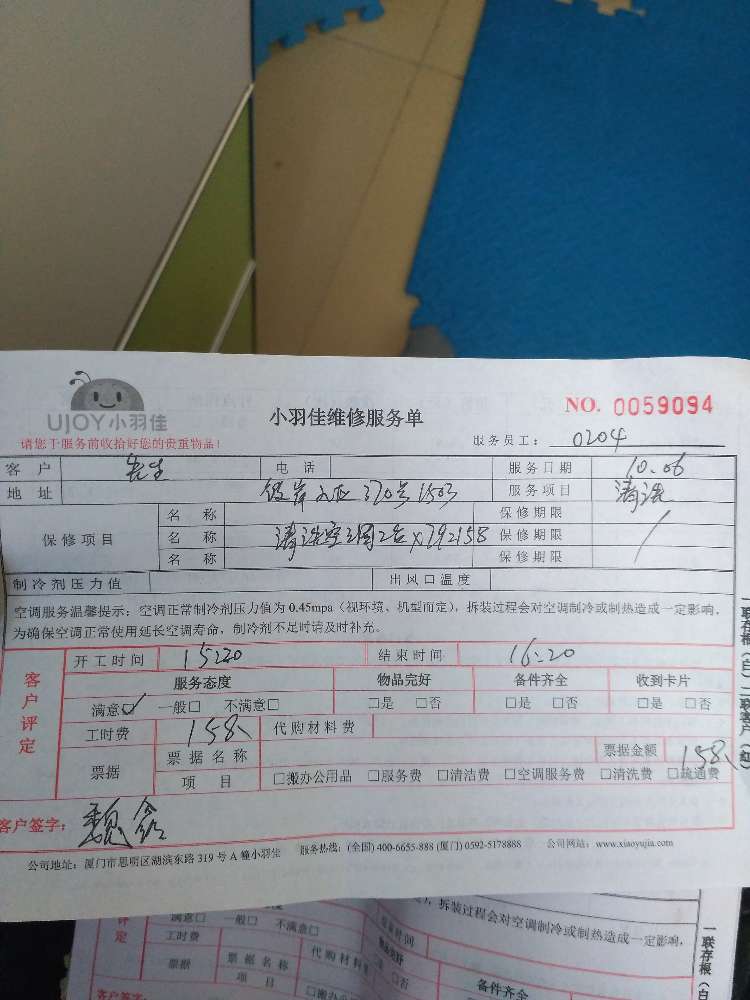 UJOY小羽佳
小羽佳维修服务单
NO. 0059094
请您于服务前收拾好您的贵重物品!
服务员工: 0204
客 户 先生 电 话 服务日期 10.06
地 址 370号1503 服务项目 清洗
保修项目 名 称 保修期限
名 称 清洗空调2台X79=158 保修期限
名 称 保修期限
制冷剂压力值 出风口温度
空调服务温馨提示: 空调正常制冷剂压力值为 0.45mpa (视环境、机型而定), 拆装过程会对空调制冷或制热造成一定影响,
为确保空调正常使用延长空调寿命, 制冷剂不足时请及时补充。
客户评定
开工时间 15:20 结束时间 16:20
服务态度 物品完好 备件齐全 收到卡片
满意☑ 一般□ 不满意□ □是 □否 □是 □否 □是 □否
工时费 158 代购材料费
票据 票据名称 票据金额 158
项 目 □搬办公用品 □服务费 □清洁费 □空调服务费 □清洗费 □疏通费
客户签字:
公司地址: 厦门市思明区湖滨东路 319 号 A 幢小羽佳 服务热线: (全国) 400-6655-888 (厦门) 0592-5178888 公司网站: www.xiaoyujia.com
一联存根 (白) 二联客户 (红)
拆装过程会对空调制冷或制热造成一定影响,
评定
满意□ 一般□ 不满意□
工时费 代购材料
票据 票据名称
项 目 □搬办公
备件齐全
客户签字:
一联存根 (白